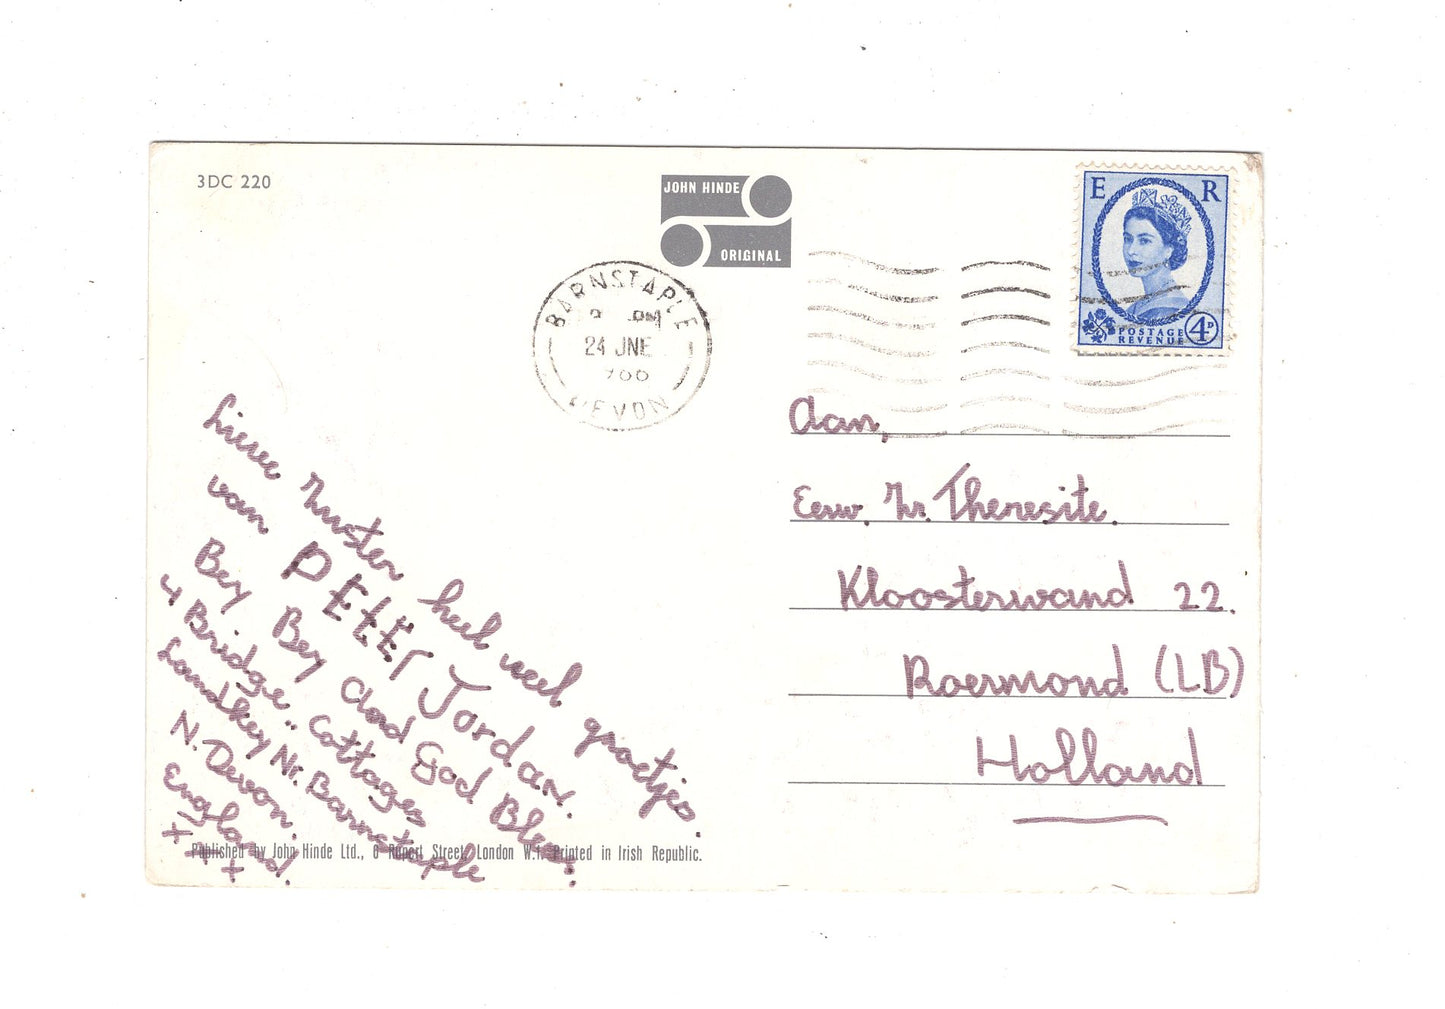 3DC 220
JOHN HINDE
ORIGINAL
E R
POSTAGE
REVENUE
4D
BARNSTAPLE
PM
24 JNE
1966
DEVON
Lieve Zuster heel veel groetjes.
van PETER Jordan.
Bey Bey And God Bless.
4 Bridge Cottages
Landkey Nr. Barnstaple
N. Devon.
England.
x x x
Published by John Hinde Ltd., 6 Rupert Street, London W.1. Printed in Irish Republic.
Aan,
Eerw. Zr. Theresite.
Kloosterwand 22.
Roermond (LB)
Holland